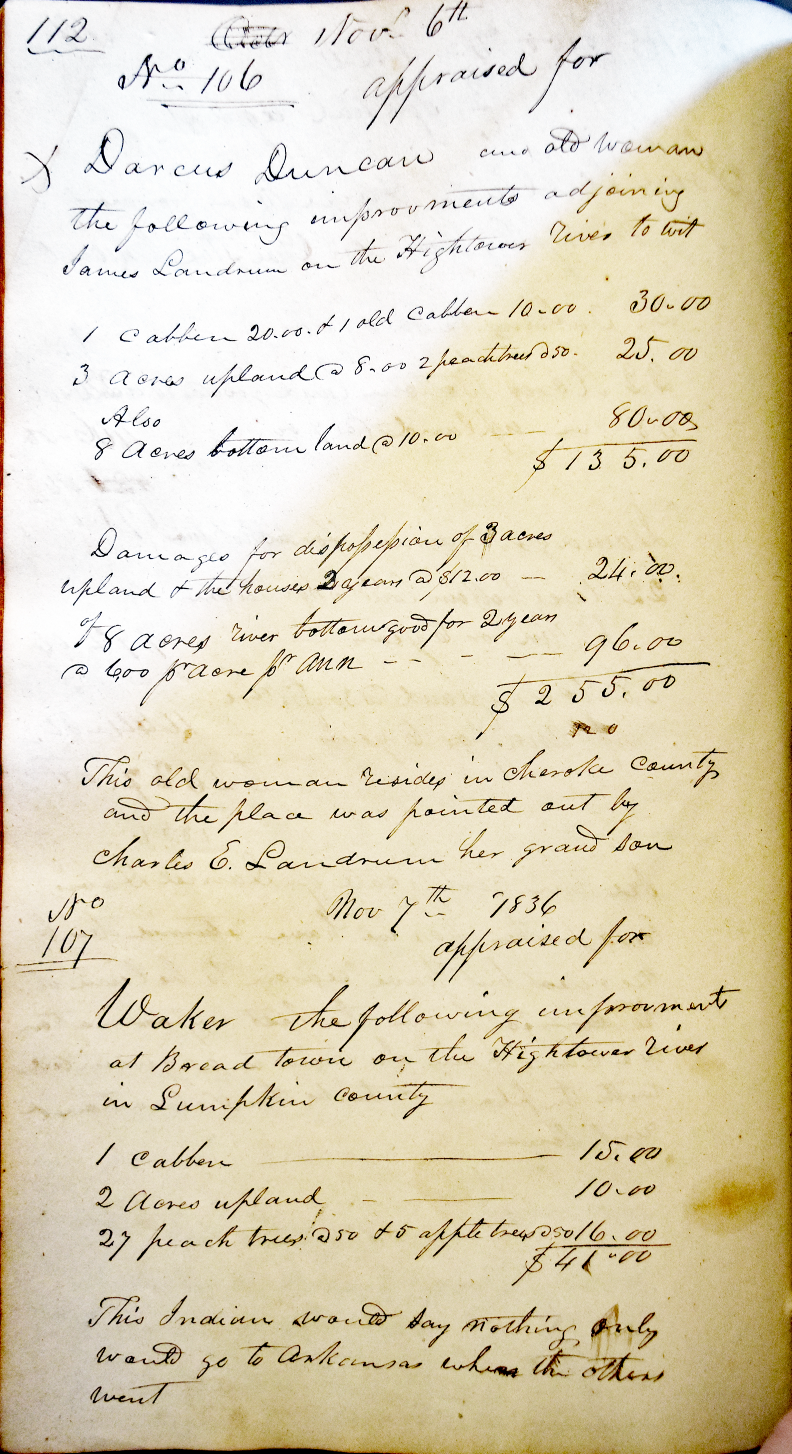 112 Nov 6th
No 106 appraised for
X Darcus Duncan and old woman
the following improovments adjoining
James Landrum on the Hightower river to wit
1 Cabben 20.00. & 1 old Cabben 10.00. 30.00
3 Acres upland @ 8.00 2 peachtrees @ 50. 25.00
Also
8 Acres bottom land @ 10.00 80.00
$135.00
Damages for dispossession of 3 acres
upland & the houses 2 years @ $12.00 — 24.00.
of 8 acres river bottom good for 2 years
@ 600 pr acre pr Ann - - - — 96.00
$255.00
This old woman resides in Cheroke County
and the place was pointed out by
Charles E. Landrum her grand son
No
107
Nov 7th 1836
appraised for
Waker the following improvments
at Bread town on the Hightower river
in Lumpkin County
1 Cabben 15.00
2 Acres upland 10.00
27 peach trees @ 50 & 5 apple trees @ 50 16.00
$41.00
This Indian would say nothing only
would go to Arkansas when the others
went